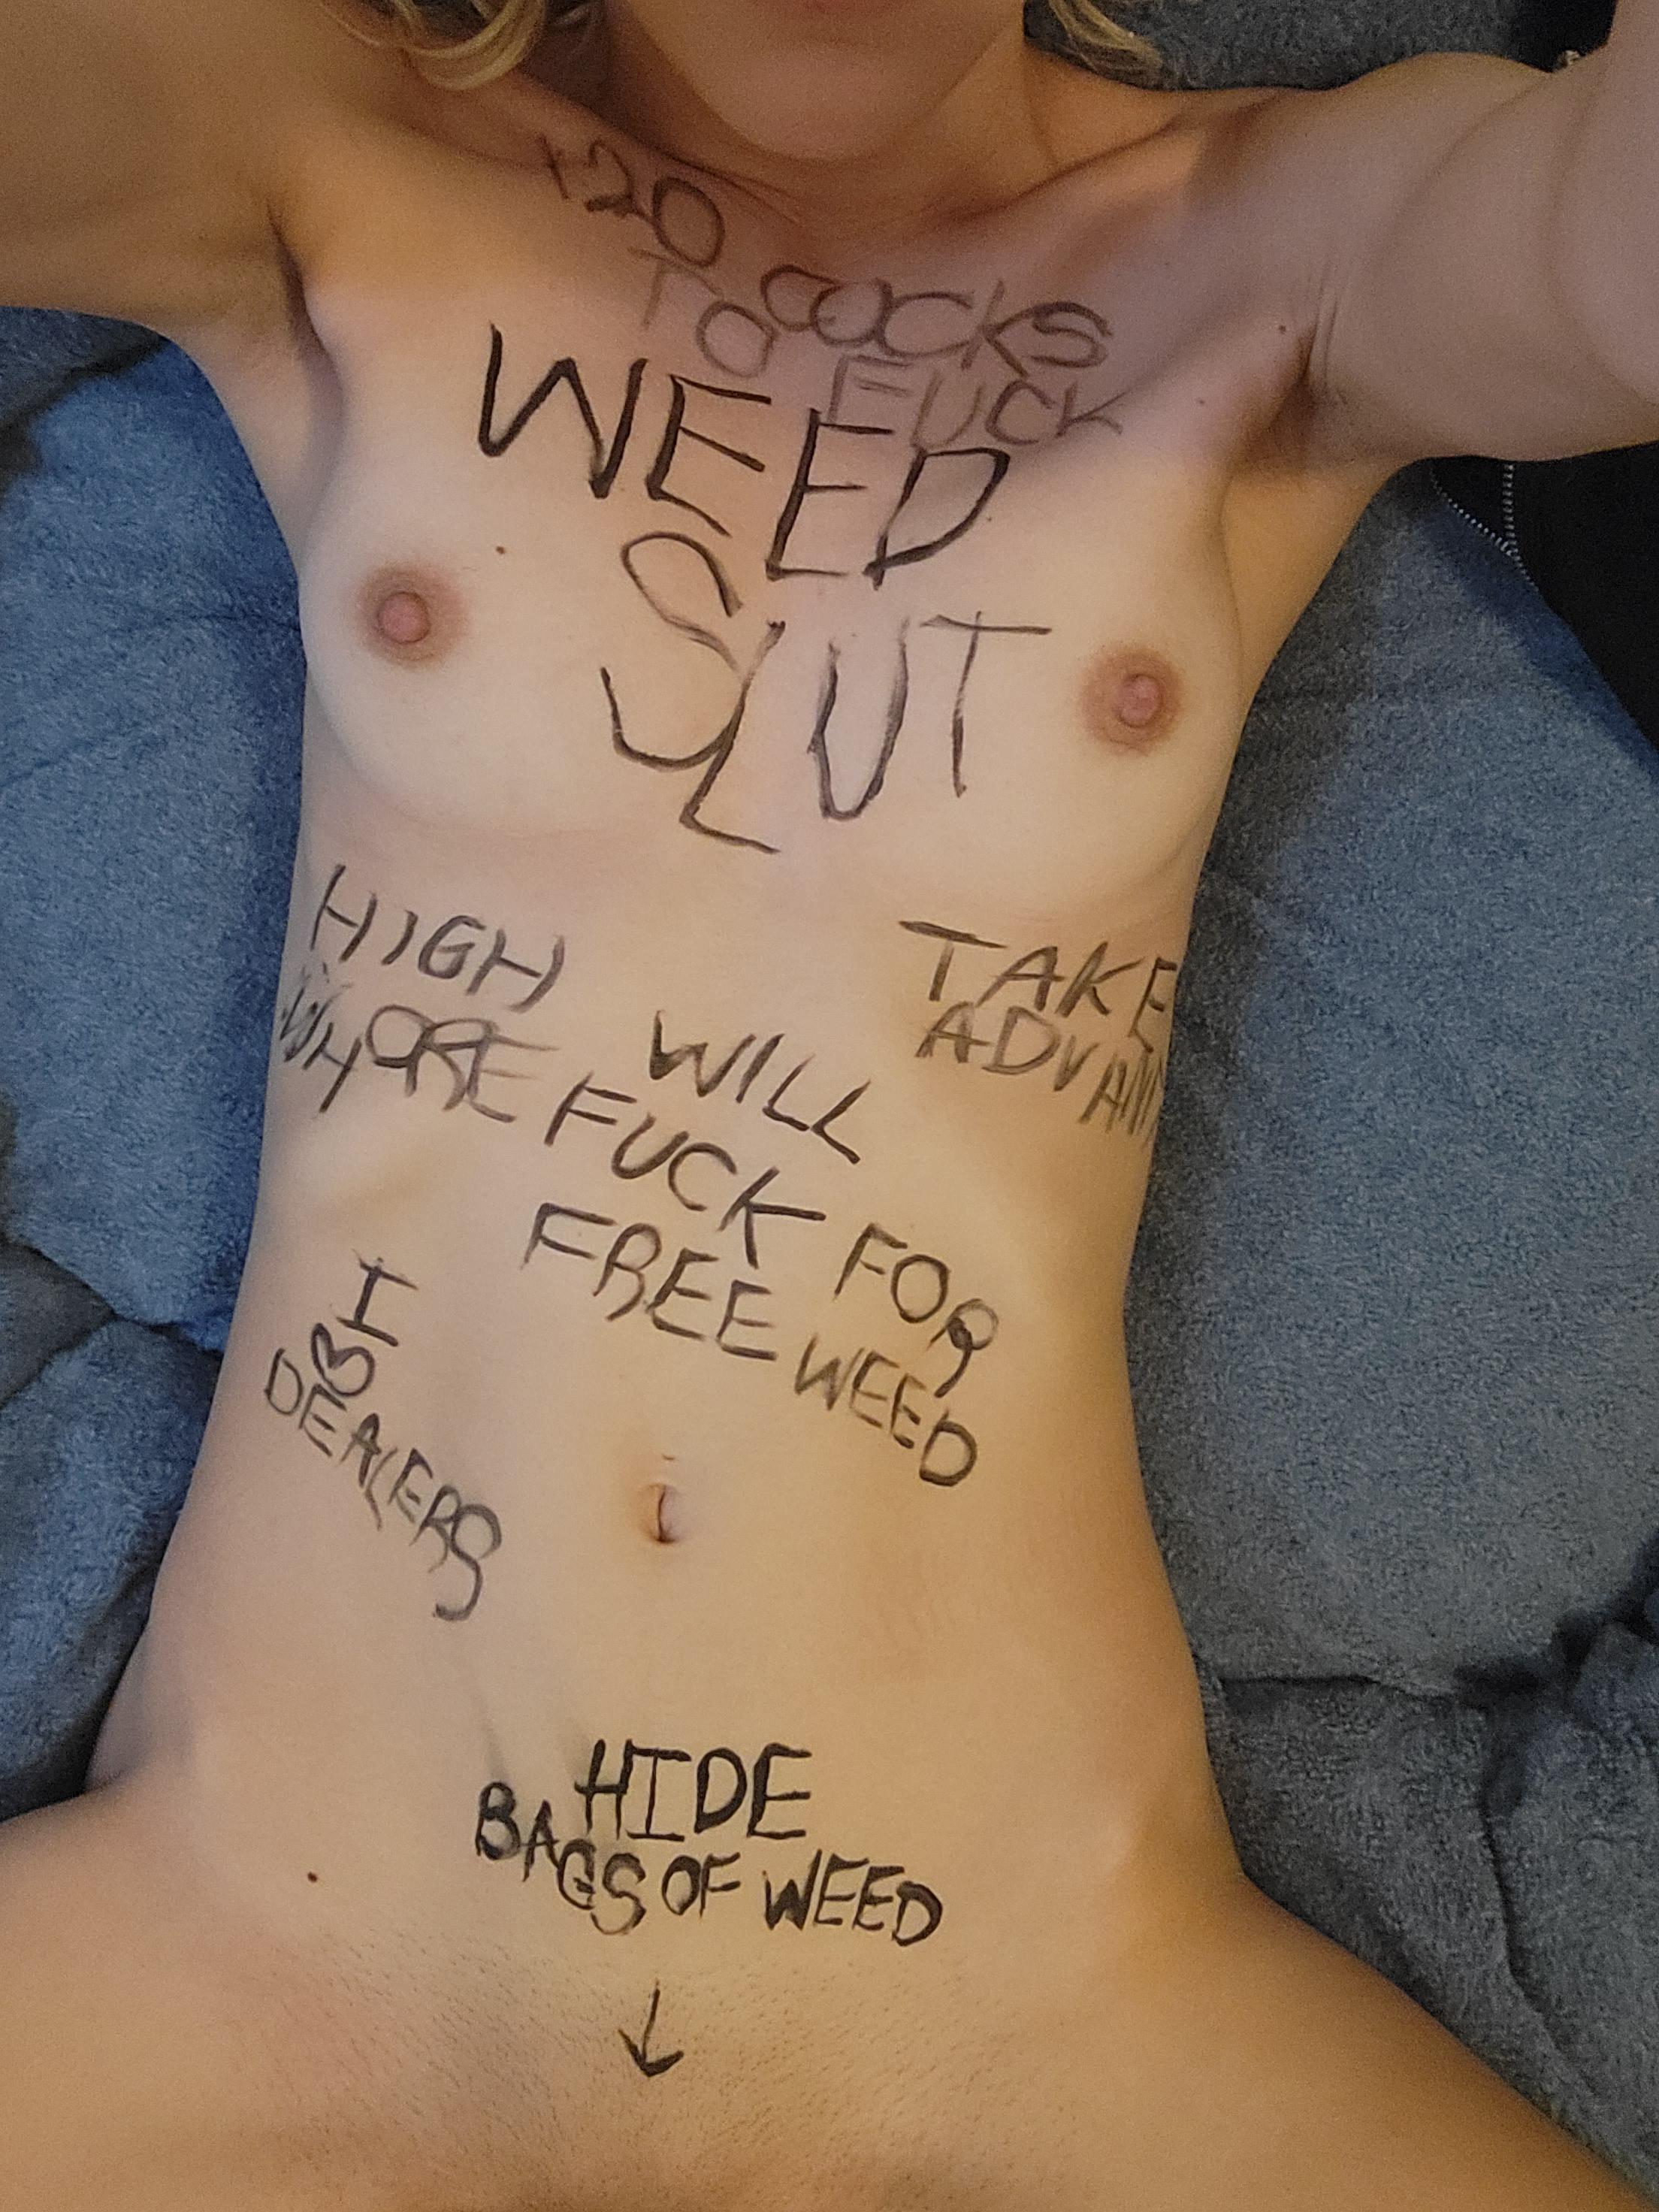 420
COCKS
TO
FUCK
WEED
SLUT
HIGH
WHORE
TAKE
WILL
FUCK FOR
FREE WEED
I
DEALERS
HIDE
BAGS OF WEED